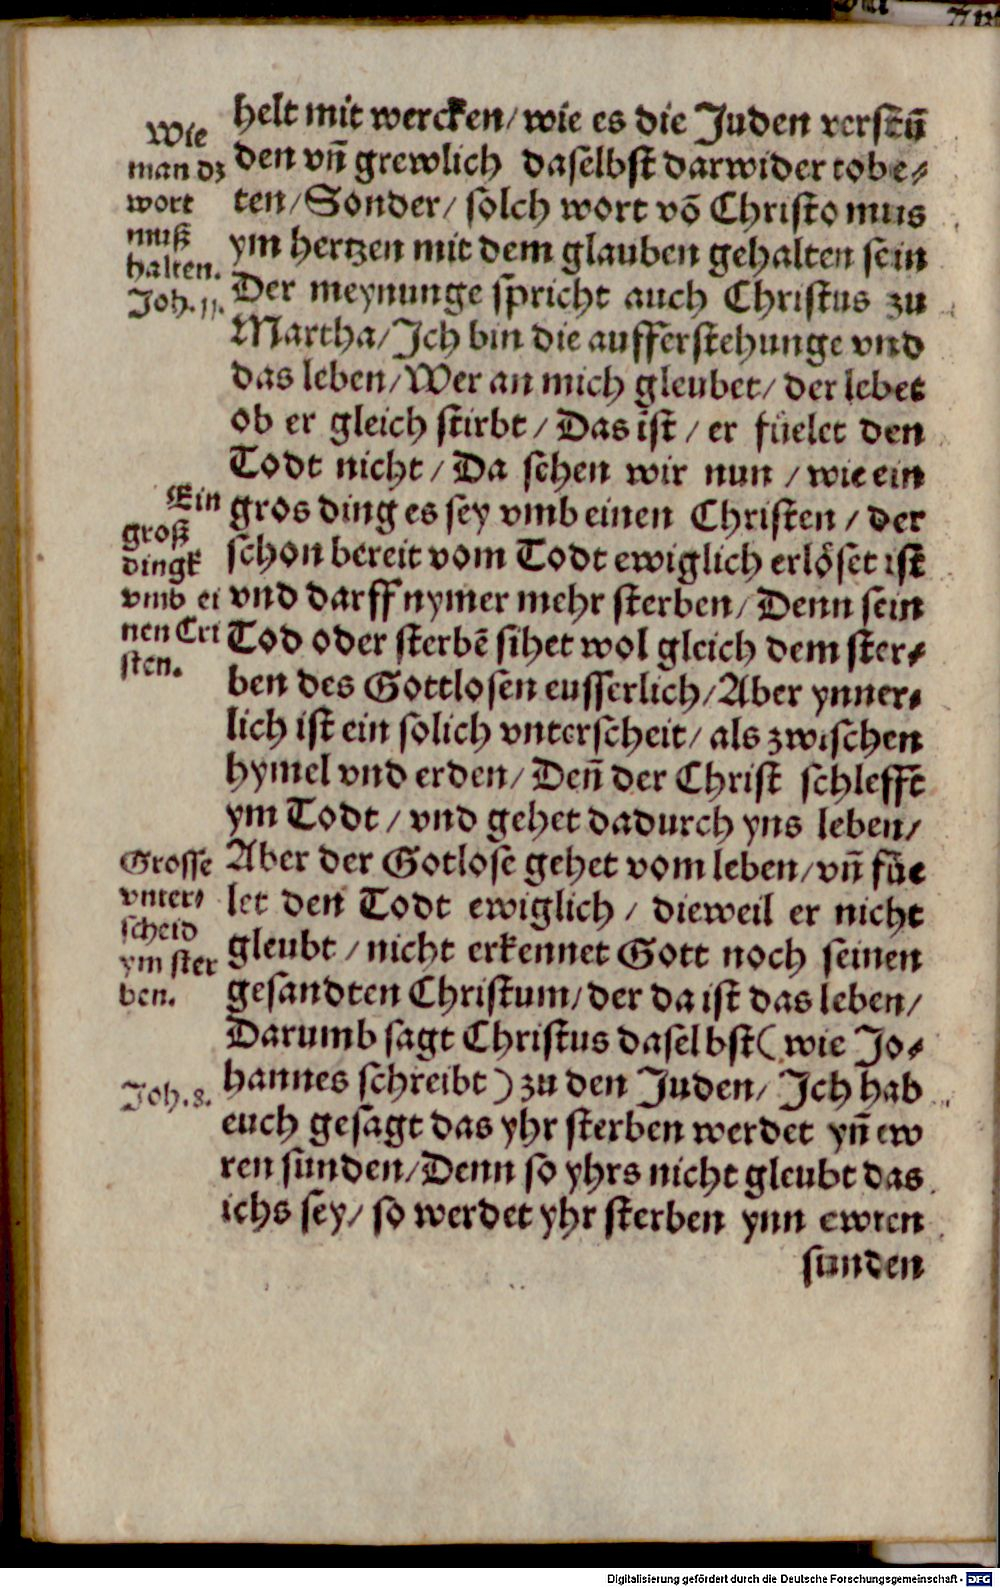 helt mit wercken/ wie es die Juden verstūden vñ grewlich daselbst darwider tobe⸗
ten/ Sonder/ solch wort võ Christo mus
ym hertzen mit dem glauben gehalten sein
Der meynunge spricht auch Christus zu
Martha/ Ich bin die aufferstehunge vnd
das leben/ Wer an mich gleubet/ der lebet
ob er gleich stirbt / Das ist / er füelet den
Todt nicht / Da sehen wir nun / wie ein
gros ding es sey vmb einen Christen / der
schon bereit vom Todt ewiglich erlöset ist
vnd darff nymer mehr sterben/ Denn sein
Tod oder sterbē sihet wol gleich dem ster⸗
ben des Gottlosen eusserlich/ Aber ynner⸗
lich ist ein solich vnterscheit/ als zwischen
hymel vnd erden/ Deñ der Christ schlefft
ym Todt / vnd gehet dadurch yns leben/
Aber der Gotlose gehet vom leben/ vñ füe
let den Todt ewiglich / dieweil er nicht
gleubt / nicht erkennet Gott noch seinen
gesandten Christum/ der da ist das leben/
Darumb sagt Christus daselbst ( wie Jo⸗
hannes schreibt ) zu den Juden/ Ich hab
euch gesagt das yhr sterben werdet yñ ew
ren sunden/ Denn so yhrs nicht gleubt das
ichs sey/ so werdet yhr sterben ynn ewren
sunden
Wie
man dz
wort
muß
halten.
Joh. 11.
Ein
groß
dingk
vmb ei
nen Cri
sten.
Grosse
vnter⸗
scheid
ym ster
ben.
Joh. 8.
Digitalisierung gefördert durch die Deutsche Forschungsgemeinschaft - DFG